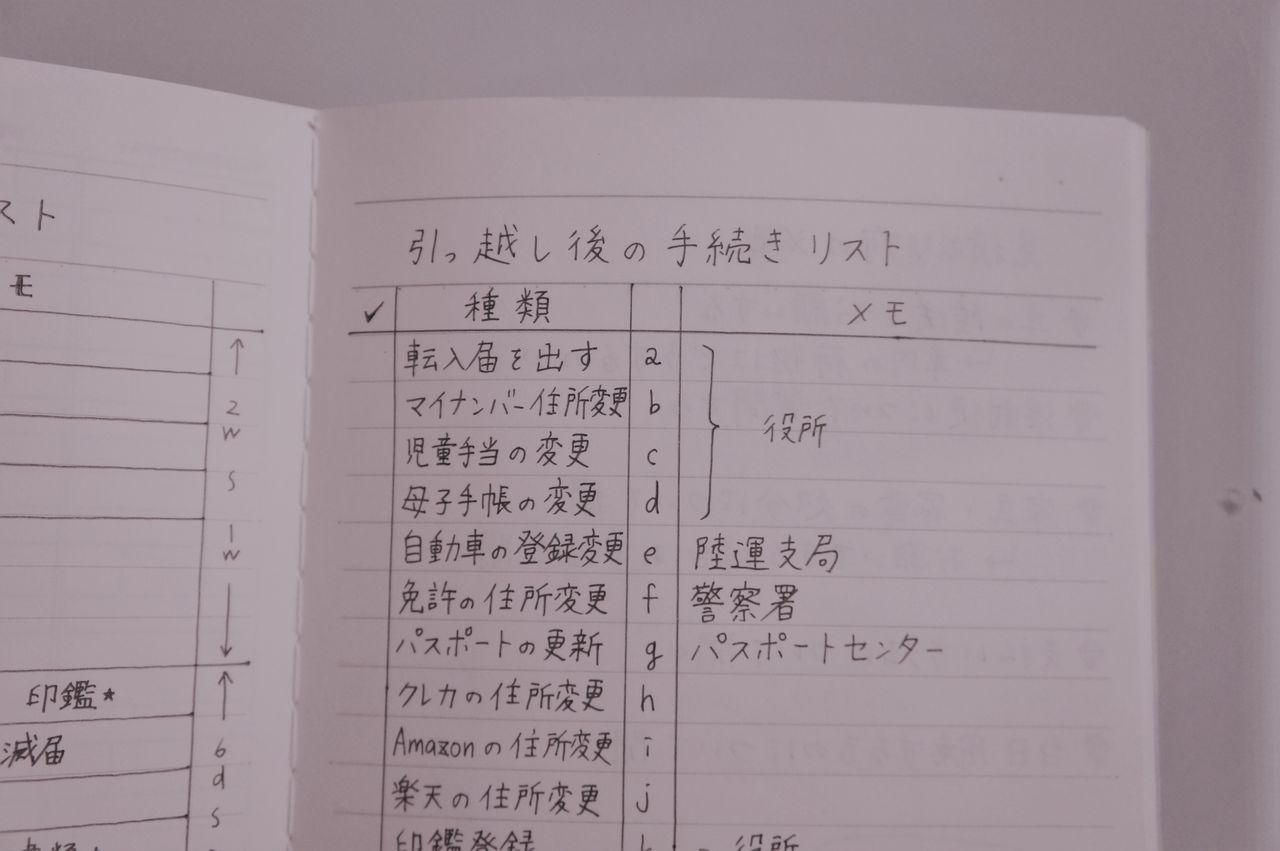 スト
モ
↑
2
w
s
1
w
↓
印鑑★
↑
滅届
6
d
s
引っ越し後の手続きリスト
✓ 種類 メモ
転入届を出す a
マイナンバー住所変更 b
役所
児童手当の変更 c
母子手帳の変更 d
自動車の登録変更 e 陸運支局
免許の住所変更 f 警察署
パスポートの更新 g パスポートセンター
クレカの住所変更 h
Amazonの住所変更 i
楽天の住所変更 j
印鑑登録 k 役所